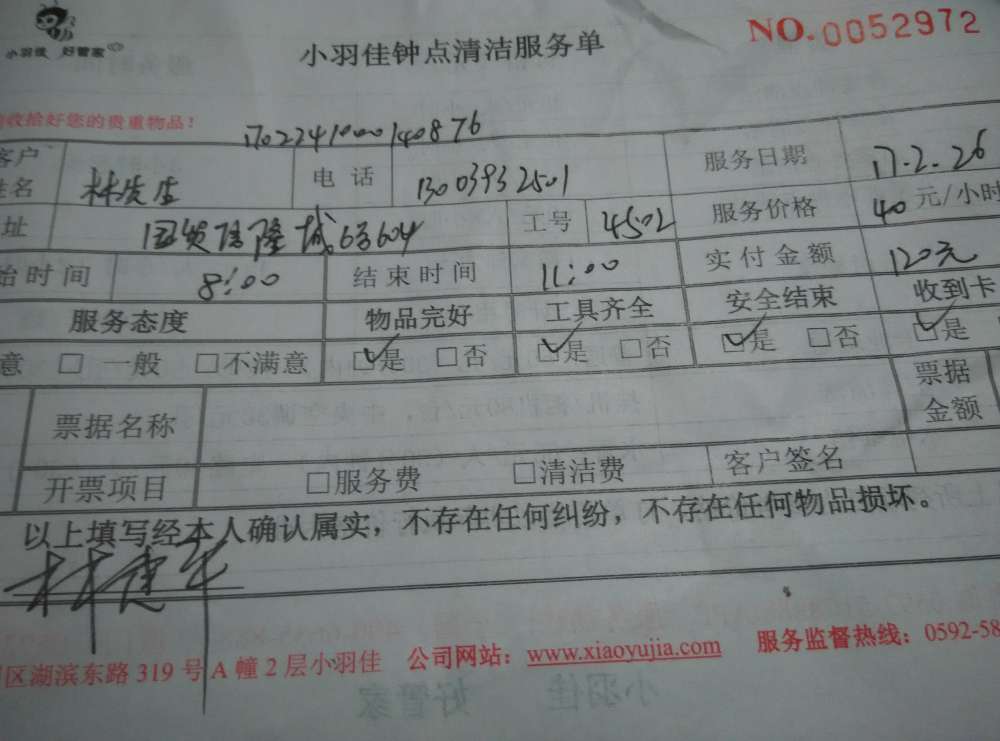 小羽佳 好管家
小羽佳钟点清洁服务单
NO.0052972
收拾好您的贵重物品！
1702241000140876
客户姓名 林先生 电话 13003932501 服务日期 17.2.26
址 国贸信隆城6号604 工号 4502 服务价格 40元/小时
始时间 8:00 结束时间 11:00 实付金额 120元
服务态度 物品完好 工具齐全 安全结束 收到卡
意 □一般 □不满意 ☑是 □否 ☑是 □否 ☑是 □否 ☑是
票据名称 票据金额
开票项目 □服务费 □清洁费 客户签名
以上填写经本人确认属实，不存在任何纠纷，不存在任何物品损坏。
林建军
区湖滨东路 319 号 A 幢 2 层小羽佳 公司网站：www.xiaoyujia.com 服务监督热线：0592-58
小羽佳 好管家